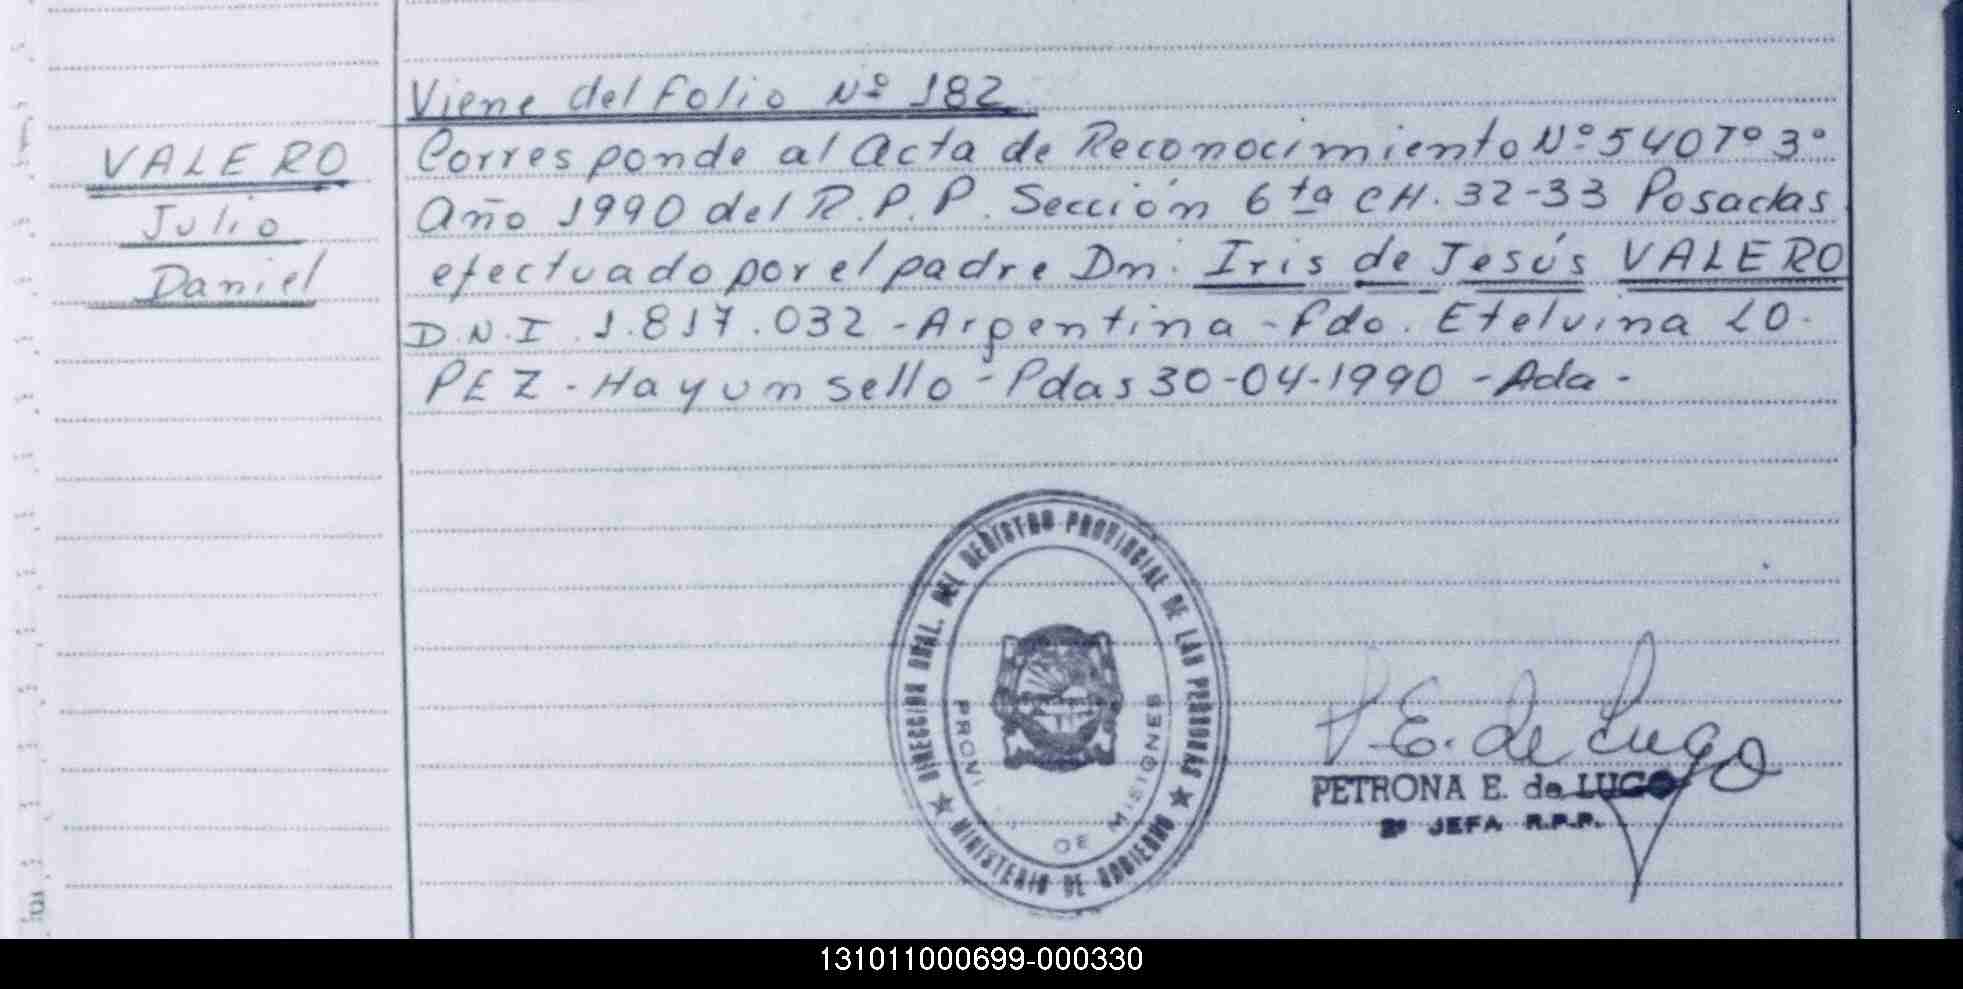 Viene del folio Nº 182
VALERO
Julio
Daniel
Corresponde al Acta de Reconocimiento Nº 540 Tº 3º
Año 1990 del R.P.P. Sección 6ta CH. 32-33 Posadas
efectuado por el padre Dn. Iris de Jesús VALERO
D.N.I. 1.817.032 - Argentina - fdo. Etelvina LO-
PEZ - Hay un sello - Pdas 30-04-1990 - Ada -
DIRECCION GRAL. DEL REGISTRO PROVINCIAL DE LAS PERSONAS
★ MINISTERIO DE GOBIERNO ★
PROVI DE MISIONES
P. E. de Lugo
PETRONA E. de LUGO
2ª JEFA R.P.P.
131011000699-000330